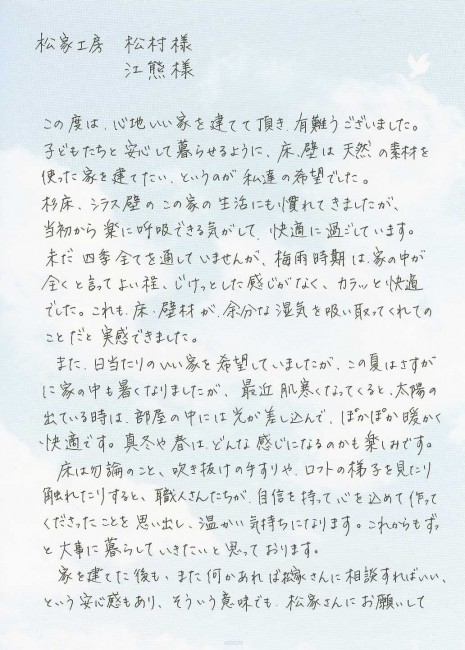 松家工房　松村様
江熊様
この度は、心地いい家を建てて頂き、有難うございました。
子どもたちと安心して暮らせるように、床、壁は天然の素材を
使った家を建てたい、というのが私達の希望でした。
杉床、シラス壁のこの家の生活にも慣れてきましたが、
当初から楽に呼吸できる気がして、快適に過ごしています。
未だ四季全てを通していませんが、梅雨時期は、家の中が
全くと言ってよい程、じけっとした感じがなく、カラッと快適
でした。これも、床・壁材が、余分な湿気を吸い取ってくれての
ことだと実感できました。
また、日当たりのいい家を希望していましたが、この夏はさすが
に家の中も暑くなりましたが、最近肌寒くなってくると、太陽の
出ている時は、部屋の中には光が差し込んで、ぽかぽか暖かく
快適です。真冬や春は、どんな感じになるのかも楽しみです。
床は勿論のこと、吹き抜けの手すりや、ロフトの梯子を見たり
触れたりすると、職人さんたちが、自信を持って心を込めて作って
くださったことを思い出し、温かい気持ちになります。これからもずっ
と大事に暮らしていきたいと思っております。
家を建てた後も、また何かあれば松家さんに相談すればいい、
という安心感もあり、そういう意味でも、松家さんにお願いして